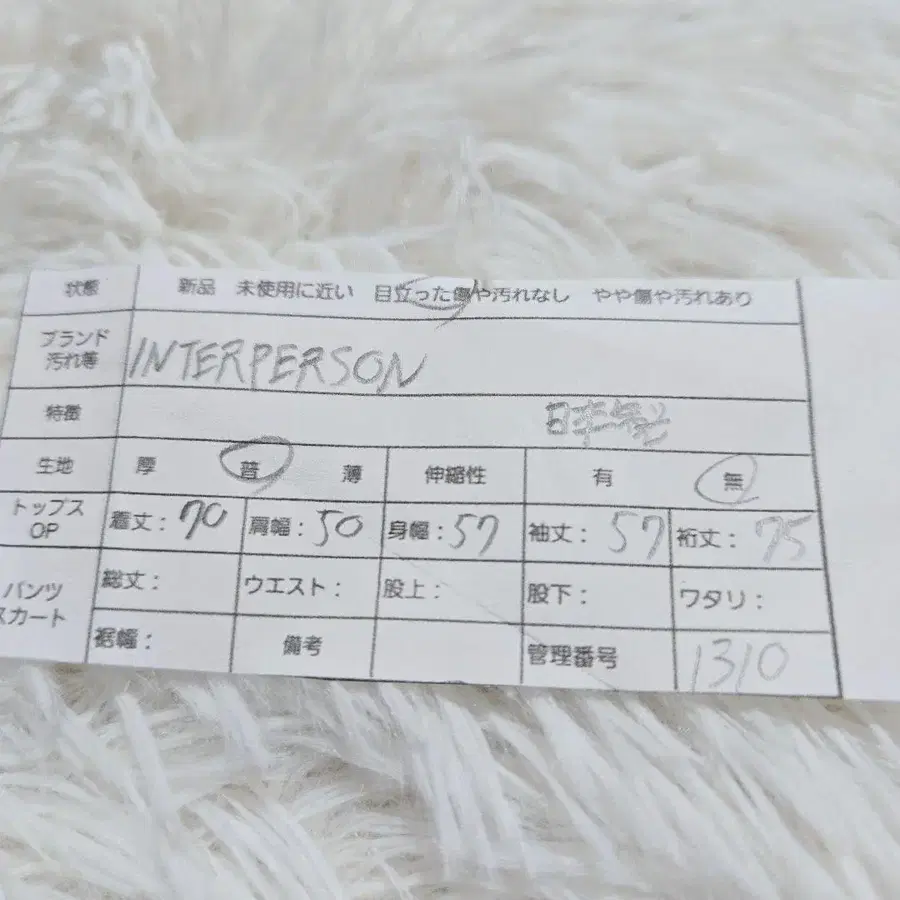 状態 新品 未使用に近い 目立った傷や汚れなし やや傷や汚れあり
ブランド
汚れ等 INTERPERSON
特徴 日本製
生地 厚 普 薄 伸縮性 有 無
トップス
OP 着丈：70 肩幅：50 身幅：57 袖丈：57 裄丈：75
パンツ
スカート 総丈： ウエスト： 股上： 股下： ワタリ：
裾幅： 備考 管理番号 1310